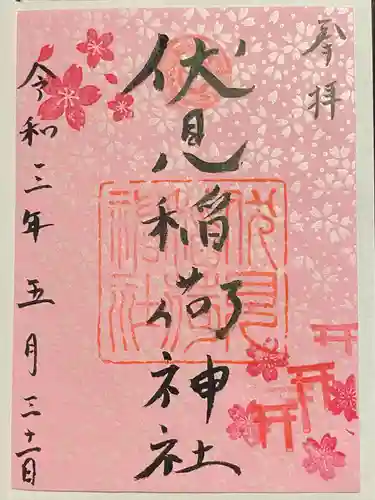 奉拝
伏見稲荷神社
令和三年五月三十一日
伏見稲荷神社